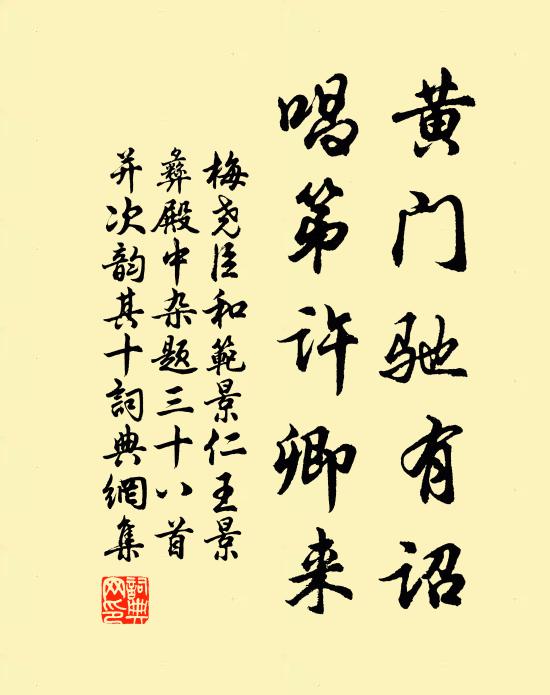 黄门驰有诏
唱第许卿来
梅尧臣和範景仁王景
彝殿中杂题三十八首
并次韵其十詞典網集